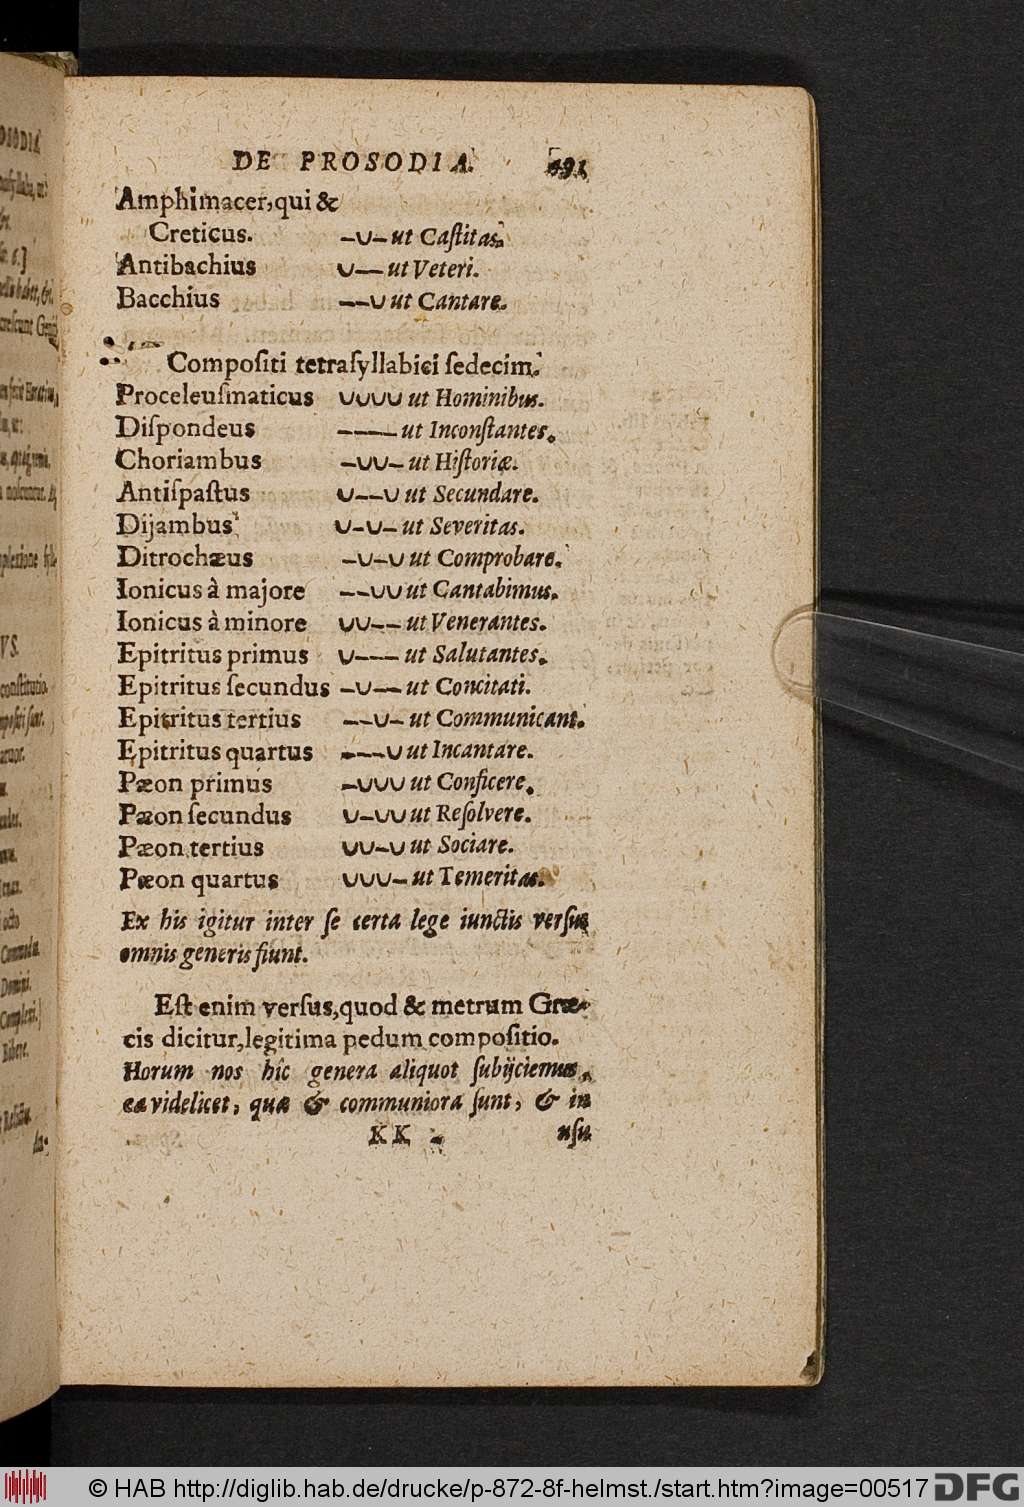 DE PROSODIA. 491
Amphimacer, qui &
Creticus. –∪– ut Caſtitas.
Antibachius ∪–– ut Veteri.
Bacchius ––∪ ut Cantare.
Compoſiti tetraſyllabici ſedecim.
Proceleuſmaticus ∪∪∪∪ ut Hominibus.
Diſpondeus –––– ut Inconſtantes.
Choriambus –∪∪– ut Hiſtoriæ.
Antiſpaſtus ∪––∪ ut Secundare.
Dijambus ∪–∪– ut Severitas.
Ditrochæus –∪–∪ ut Comprobare.
Ionicus à majore ––∪∪ ut Cantabimus.
Ionicus à minore ∪∪–– ut Venerantes.
Epitritus primus ∪––– ut Salutantes.
Epitritus ſecundus –∪–– ut Concitati.
Epitritus tertius ––∪– ut Communicant.
Epitritus quartus –––∪ ut Incantare.
Pæon primus –∪∪∪ ut Conficere.
Pæon ſecundus ∪–∪∪ ut Reſolvere.
Pæon tertius ∪∪–∪ ut Sociare.
Pæon quartus ∪∪∪– ut Temeritas.
Ex his igitur inter ſe certa lege iunctis verſus
omnis generis fiunt.
Eſt enim verſus, quod & metrum Græ-
cis dicitur, legitima pedum compoſitio.
Horum nos hîc genera aliquot ſubijciemus,
ea videlicet, quæ & communiora ſunt, & in
KK uſu
© HAB http://diglib.hab.de/drucke/p-872-8f-helmst./start.htm?image=00517 DFG